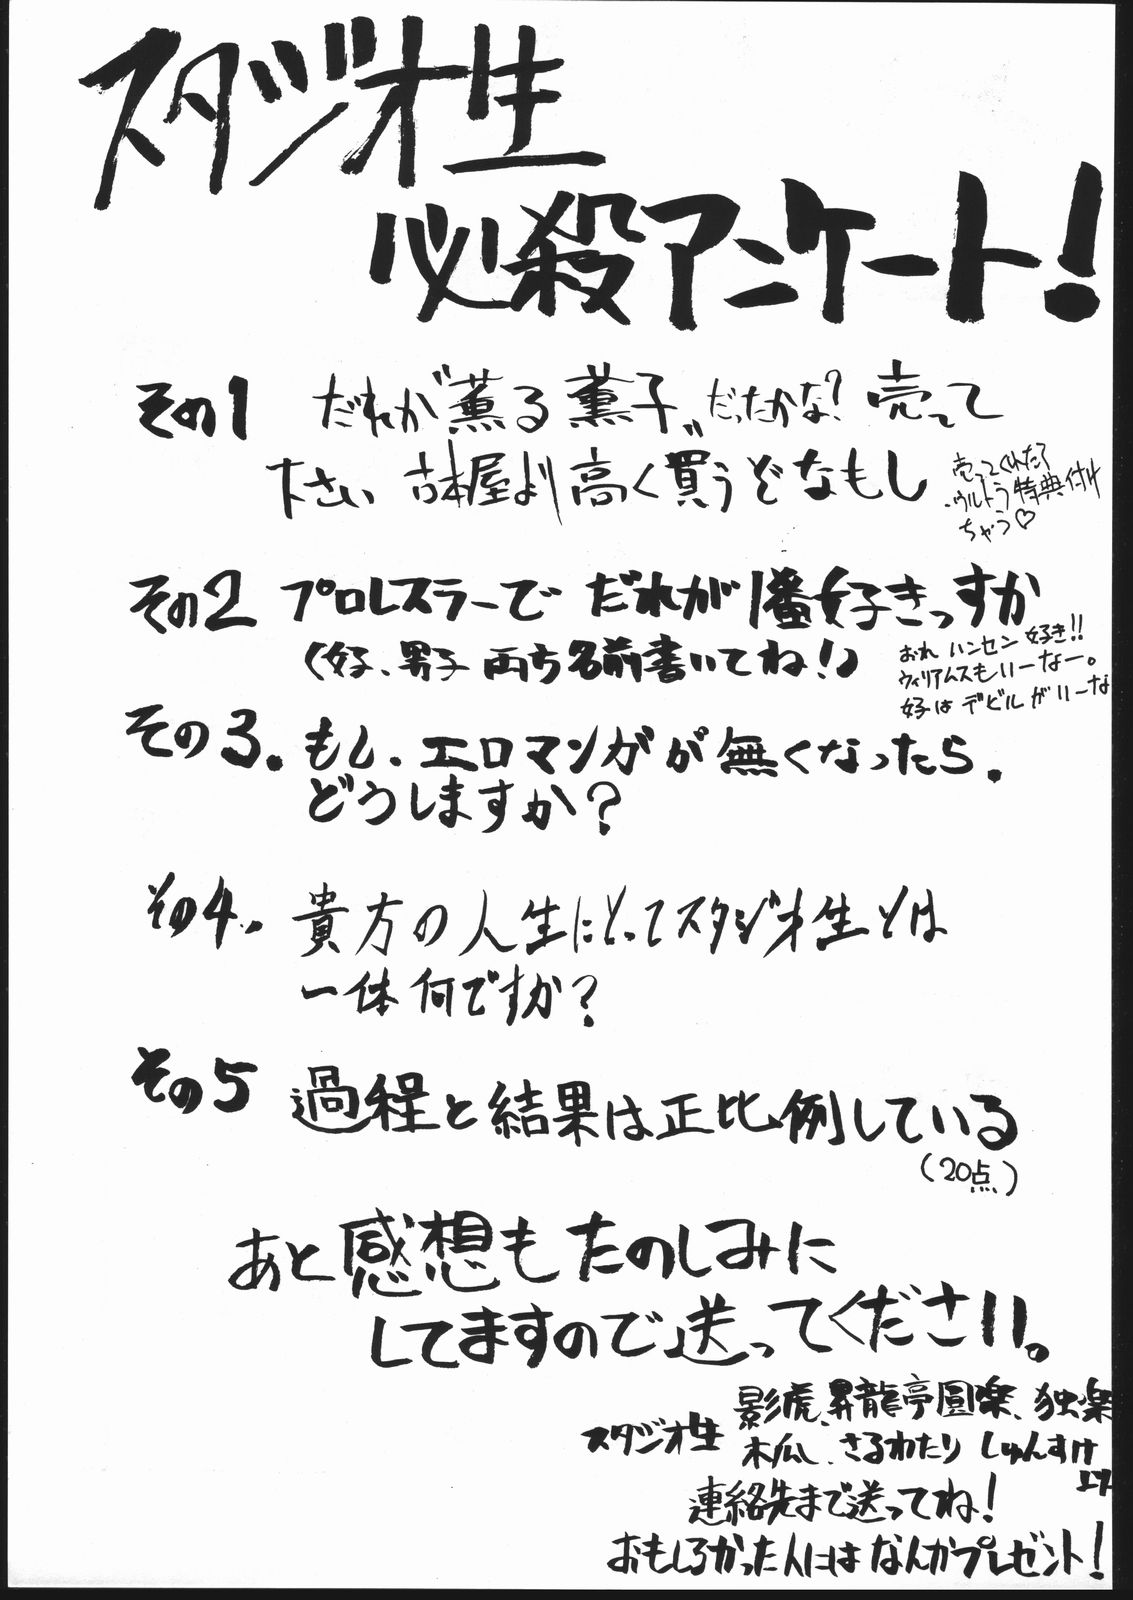 スタジオ生
必殺アンケート!
その1 だれが"薫る薫子"だったかな?売って
下さい 古本屋より高く買うぞなもし
売ってくれたら
ウルトラ特典付け
ちゃう♡
その2 プロレスラーでだれが1番好きっすか
(好、男子両方名前書いてね!)
おれハンセン好き!!
ウィリアムスもいーなー。
好はデビルがいーな
その3.もし.エロマンガが無くなったら.
どうしますか?
その4.. 貴方の人生にとってスタジオ生とは
一体何ですか?
その5 過程と結果は正比例している
(20点)
あと感想もたのしみに
してますので送ってください。
スタジオ生 影虎、昇龍亭圓楽、独楽
木瓜、さるわたりしゅんすけ
より
連絡先まで送ってね!
おもしろかった人にはなんかプレゼント!